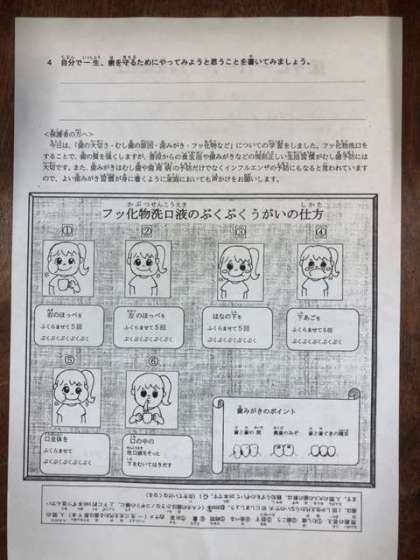 4 自分で一生、歯を守るためにやってみようと思うことを書いてみましょう。
<保護者の方へ>
今日は、「歯の大切さ・むし歯の原因・歯みがき・フッ化物など」についての学習をしました。フッ化物洗口を
することで、歯の質を強くしますが、普段からの食生活や歯みがきなどの規則正しい生活習慣がむし歯予防には
大切です。また、歯みがきはむし歯や歯周病の予防だけでなくインフルエンザの予防にもなると言われています
ので、よい歯みがき習慣が身に着くように家庭においても声かけをお願いします。
フッ化物洗口液のぶくぶくうがいの仕方
① ② ③ ④
右のほっぺを
ふくらませて5回
ぶくぶくぶくぶくぶく
左のほっぺを
ふくらませて5回
ぶくぶくぶくぶくぶく
はなの下を
ふくらませて5回
ぶくぶくぶくぶくぶく
下あごを
ふくらませて5回
ぶくぶくぶくぶくぶく
⑤ ⑥
口全体を
ふくらませて
ぶくぶくぶくぶくぶく
口の中の
洗口液をそっと
下をむいてはきだす
歯みがきのポイント
歯と歯の間
奥歯のみぞ
歯と歯ぐきの境目